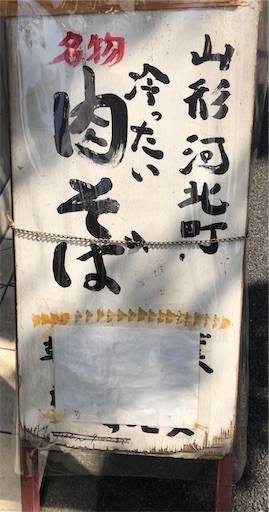 山形河北町
名物
冷ったい
肉そば